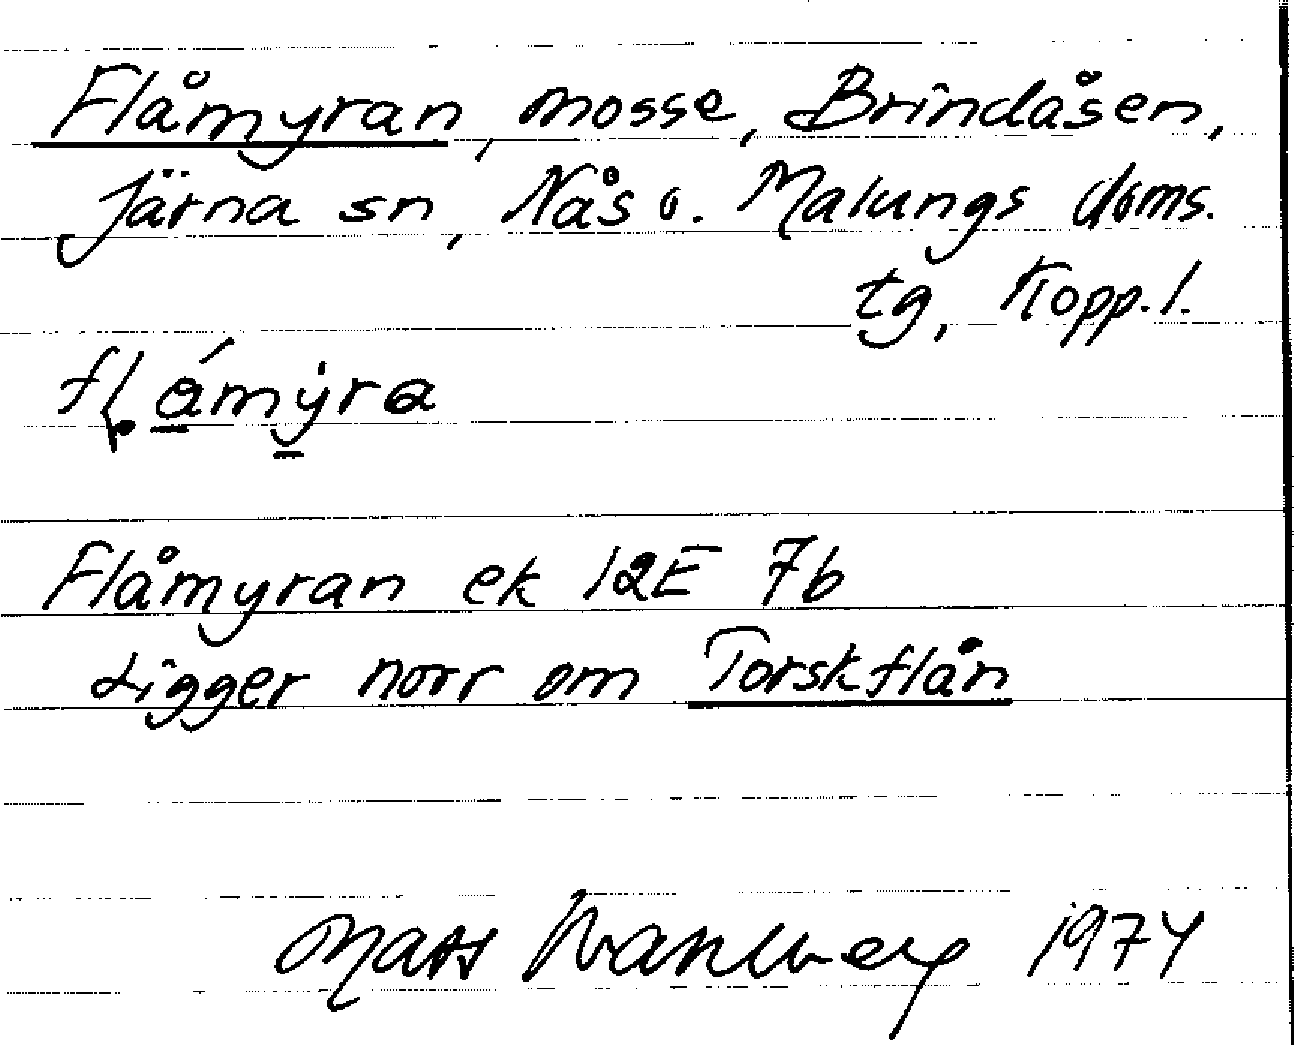 Flåmyran, mosse, Brindåsen,
Järna sn, Nås o. Malungs doms.
tg, Kopp. l.
flǻmẏra
Flåmyran ek 12E 7b
Ligger norr om Torskflån
Mats Wahlberg 1974